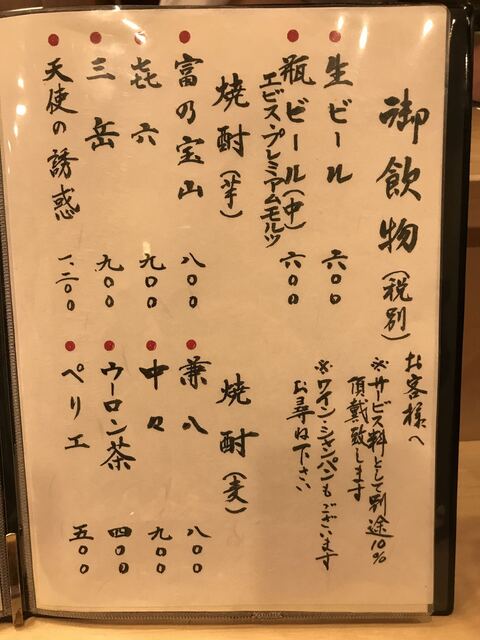 御飲物(税別)
生ビール 六〇〇
瓶ビール(中) 六〇〇
エビス・プレミアムモルツ
焼酎(芋)
富乃宝山 八〇〇
㐂六 九〇〇
三岳 九〇〇
天使の誘惑 一、二〇〇
お客様へ
※サービス料として別途10%
頂戴致します
※ワイン・シャンパンもございます
お尋ね下さい
焼酎(麦)
兼八 八〇〇
中々 九〇〇
ウーロン茶 四〇〇
ペリエ 五〇〇